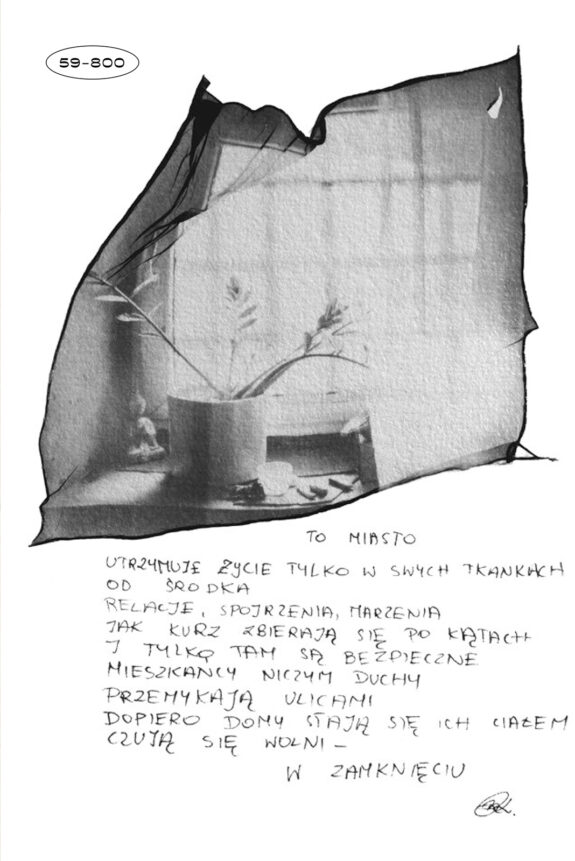 59-800
TO MIASTO
UTRZYMUJE ŻYCIE TYLKO W SWYCH TKANKACH
OD ŚRODKA
RELACJE, SPOJRZENIA, MARZENIA
JAK KURZ ZBIERAJĄ SIĘ PO KĄTACH
I TYLKO TAM SĄ BEZPIECZNE
MIESZKAŃCY NICZYM DUCHY
PRZEMYKAJĄ ULICAMI
DOPIERO DOMY STAJĄ SIĘ ICH CIAŁEM
CZUJĄ SIĘ WOLNI –
W ZAMKNIĘCIU